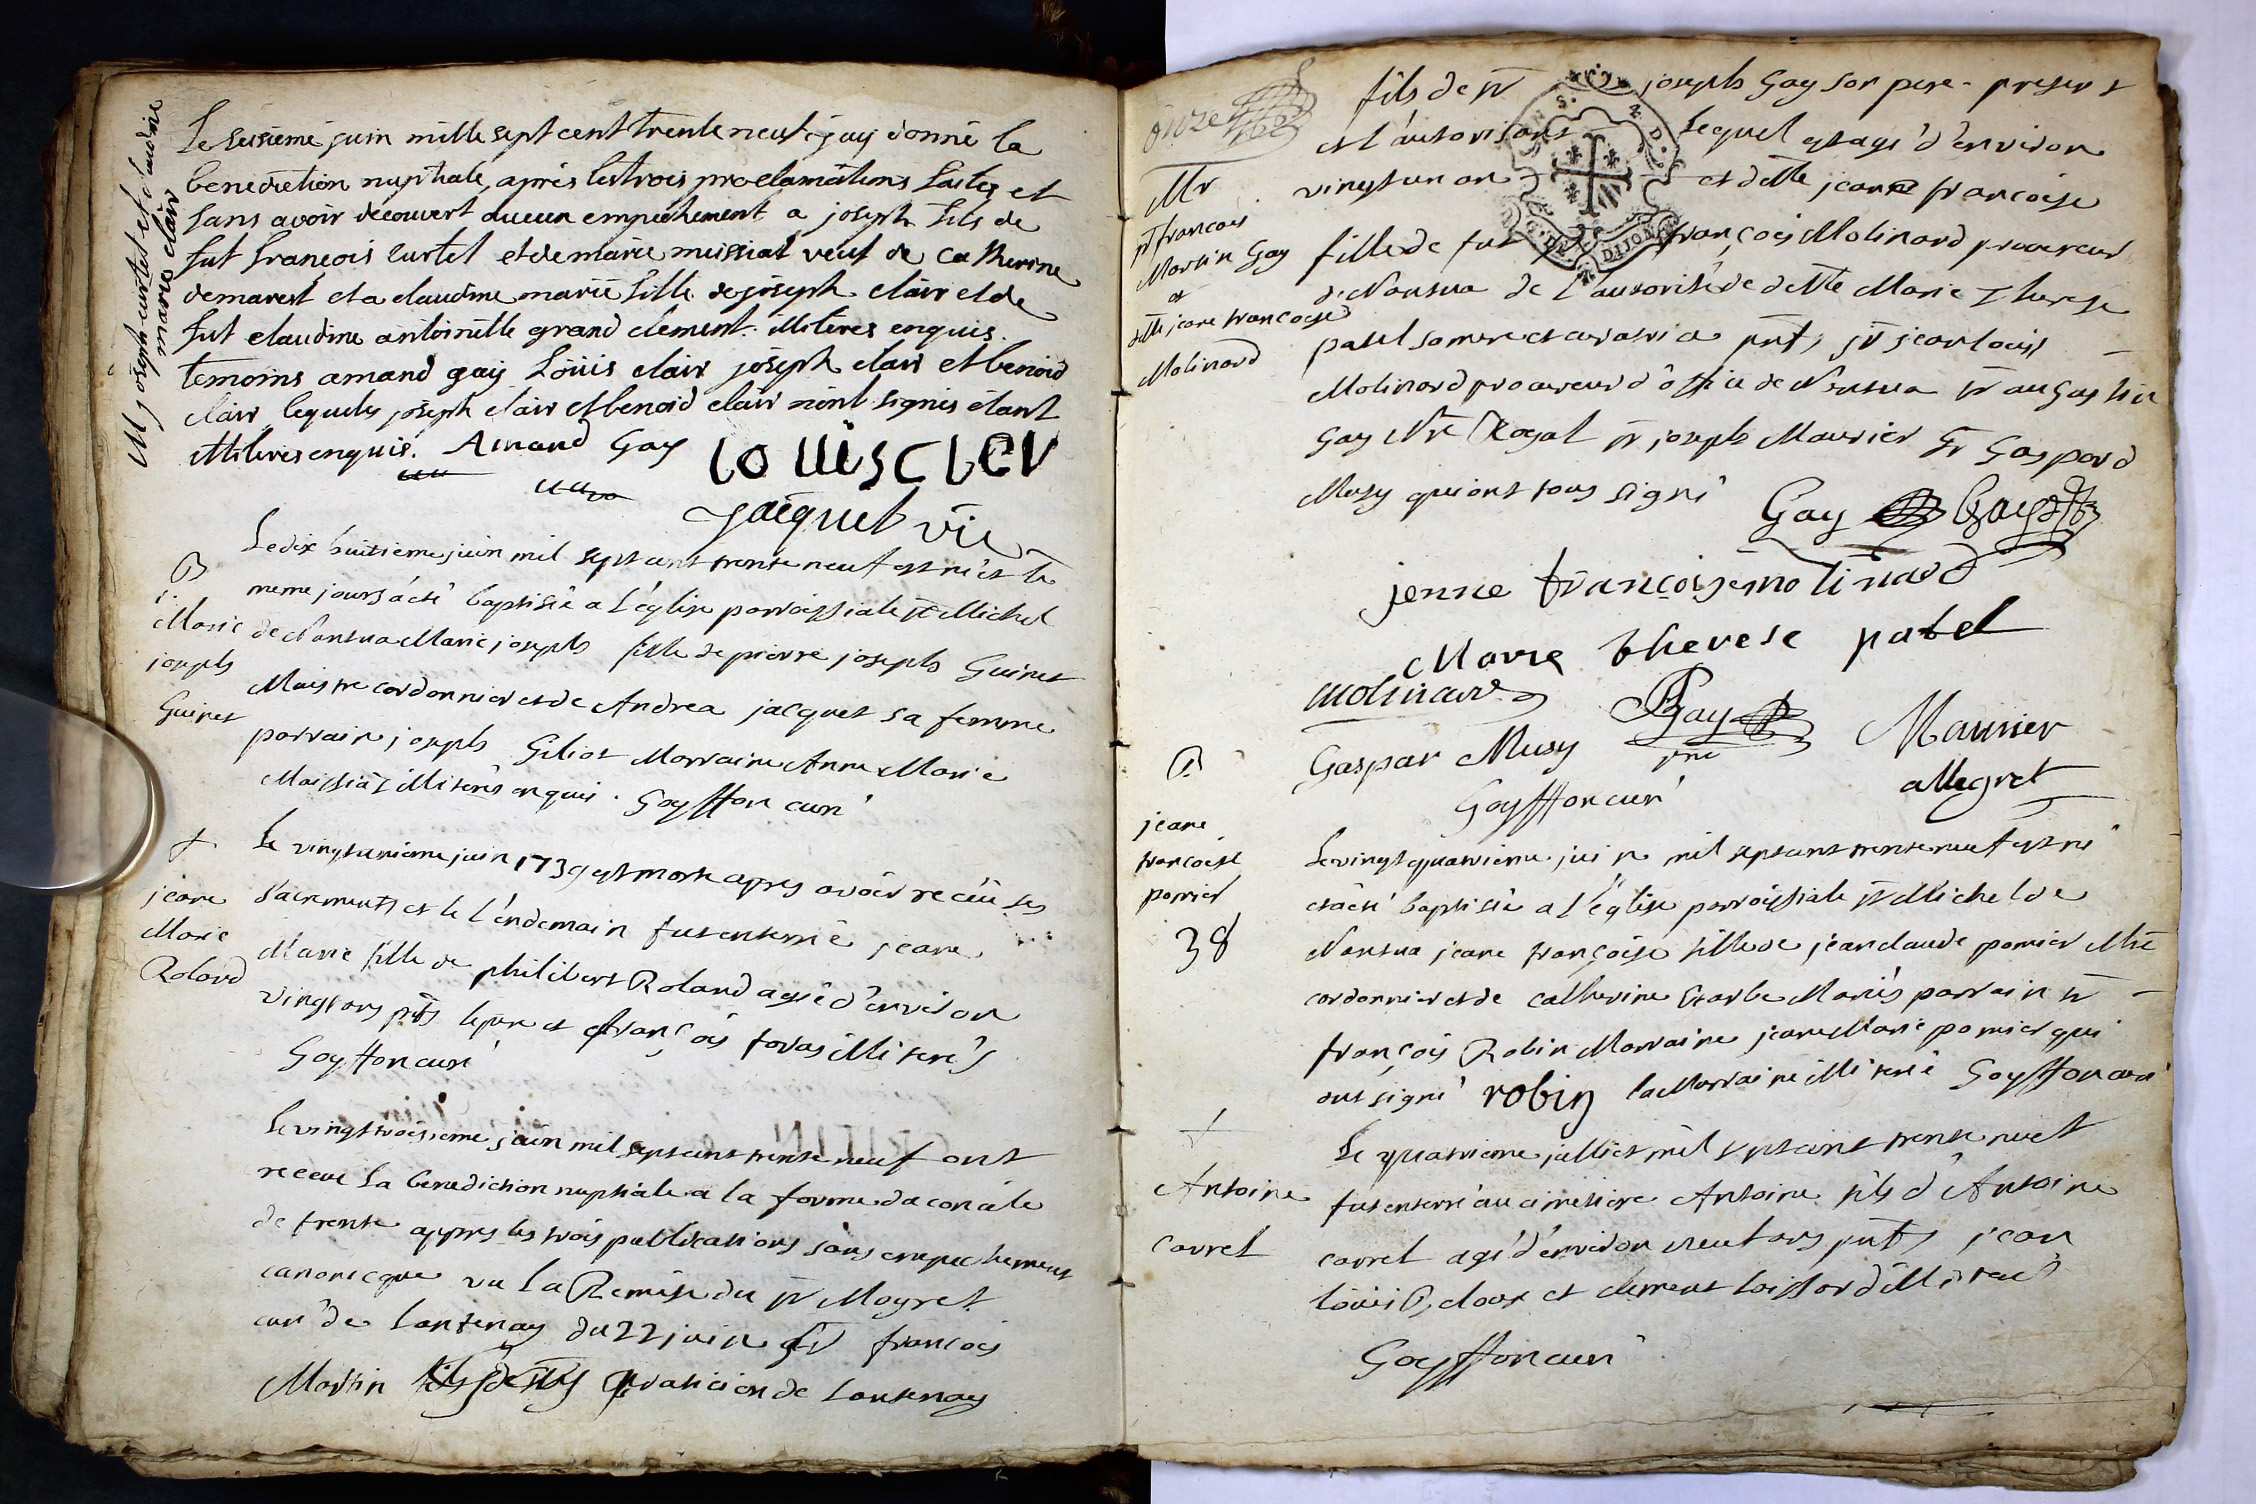 M joseph curtet et claudine
marie clair
Le seisieme juin mille sept cent trente neuf j'ay donné la
benediction nuptiale, après les trois proclamations faites et
sans avoir découvert aucun empechement a joseph fils de
fut françois curtet et de marie muissiat veuf de catherine
demarest et a claudine marie fille de joseph clair et de
fut claudine antoinette grand clement. illiteres enquis.
temoins amand gay Loüis clair joseph clair et benoid
clair lequels joseph clair et benoid clair n'ont signés étant
illiteres enquis. Amand Gay louis cler
Jacquet vic
B
Marie
joseph
Guinet
Le dix huitieme juin mil sept cent trente neuf est né et le
meme jours a été baptisée a l'église parroissiale st Michel
de Nantua Marie joseph fille de pierre joseph Guinet
Maistre cordonnier et de Andrea jacquet sa femme
parrain joseph Giliot Marraine Anne Marie
Maissiat illiterés enquis. Goyffon curé
+
jeane
Marie
Roland
Le vingt unieme juin 1739 est morte apres avoir reçeü ses
sacrements et le l'endemain fut enterrée jeane
Marie fille de philibert Roland agée d'environ
vingt ans pnts le pere et françois favas illiterés
Goyffon curé
Le vingt troisieme juin mil sept cent trente neuf ont
receu la benediction nuptiale a la forme du concile
de trente appres les trois publications sans empechement
canonicque vu la Remise du sr Mogret
curé de Lantenay du 22 juin sr françois
Martin praticien de Lantenay
onze
Mr
sr francois
Martin Gay
et
dtte jeane francoise
Molinard
fils de sr joseph Gay son pere present
et l'autorisant Lequel est agé d'environ
vingt un an et dtte jeanne francoise
fille de fut sr françois Molinard procureur
de Nantua de l'autorité de dtte Marie Therese
patel sa mere et curatrice pnts sr jean louis
Molinard procureur d'office de Nantua sr augustin
Gay Nre Royal sr joseph Maurier sr Gaspard
Musy qui ont tous signé Gay Gay
jenne françoise molinard
Marie therese patel
molinard Gay Maurier
Gaspar Musy allegret
Goyffon curé
B
jeane
francoise
pomier
38
Le vingt quatrieme juin mil sept cent trente neuf est né
et a été baptisée a l'église parroissiale st Michel de
Nantua jeane françoise fille de jean claude pomier Mtre
cordonnier et de catherine barbe Mariés parrain sr
françois Robin Marraine jeane Marie pomier qui
ont signé robin la Marraine illiterée Goyffon curé
+
Antoine
carret
Le quatrieme juillet mil sept cent trente neuf
fut enterré au cimetiere Antoine fils d'Antoine
carret agé d'environ neuf ans pnts jean
et clement illiterés
Goyffon curé